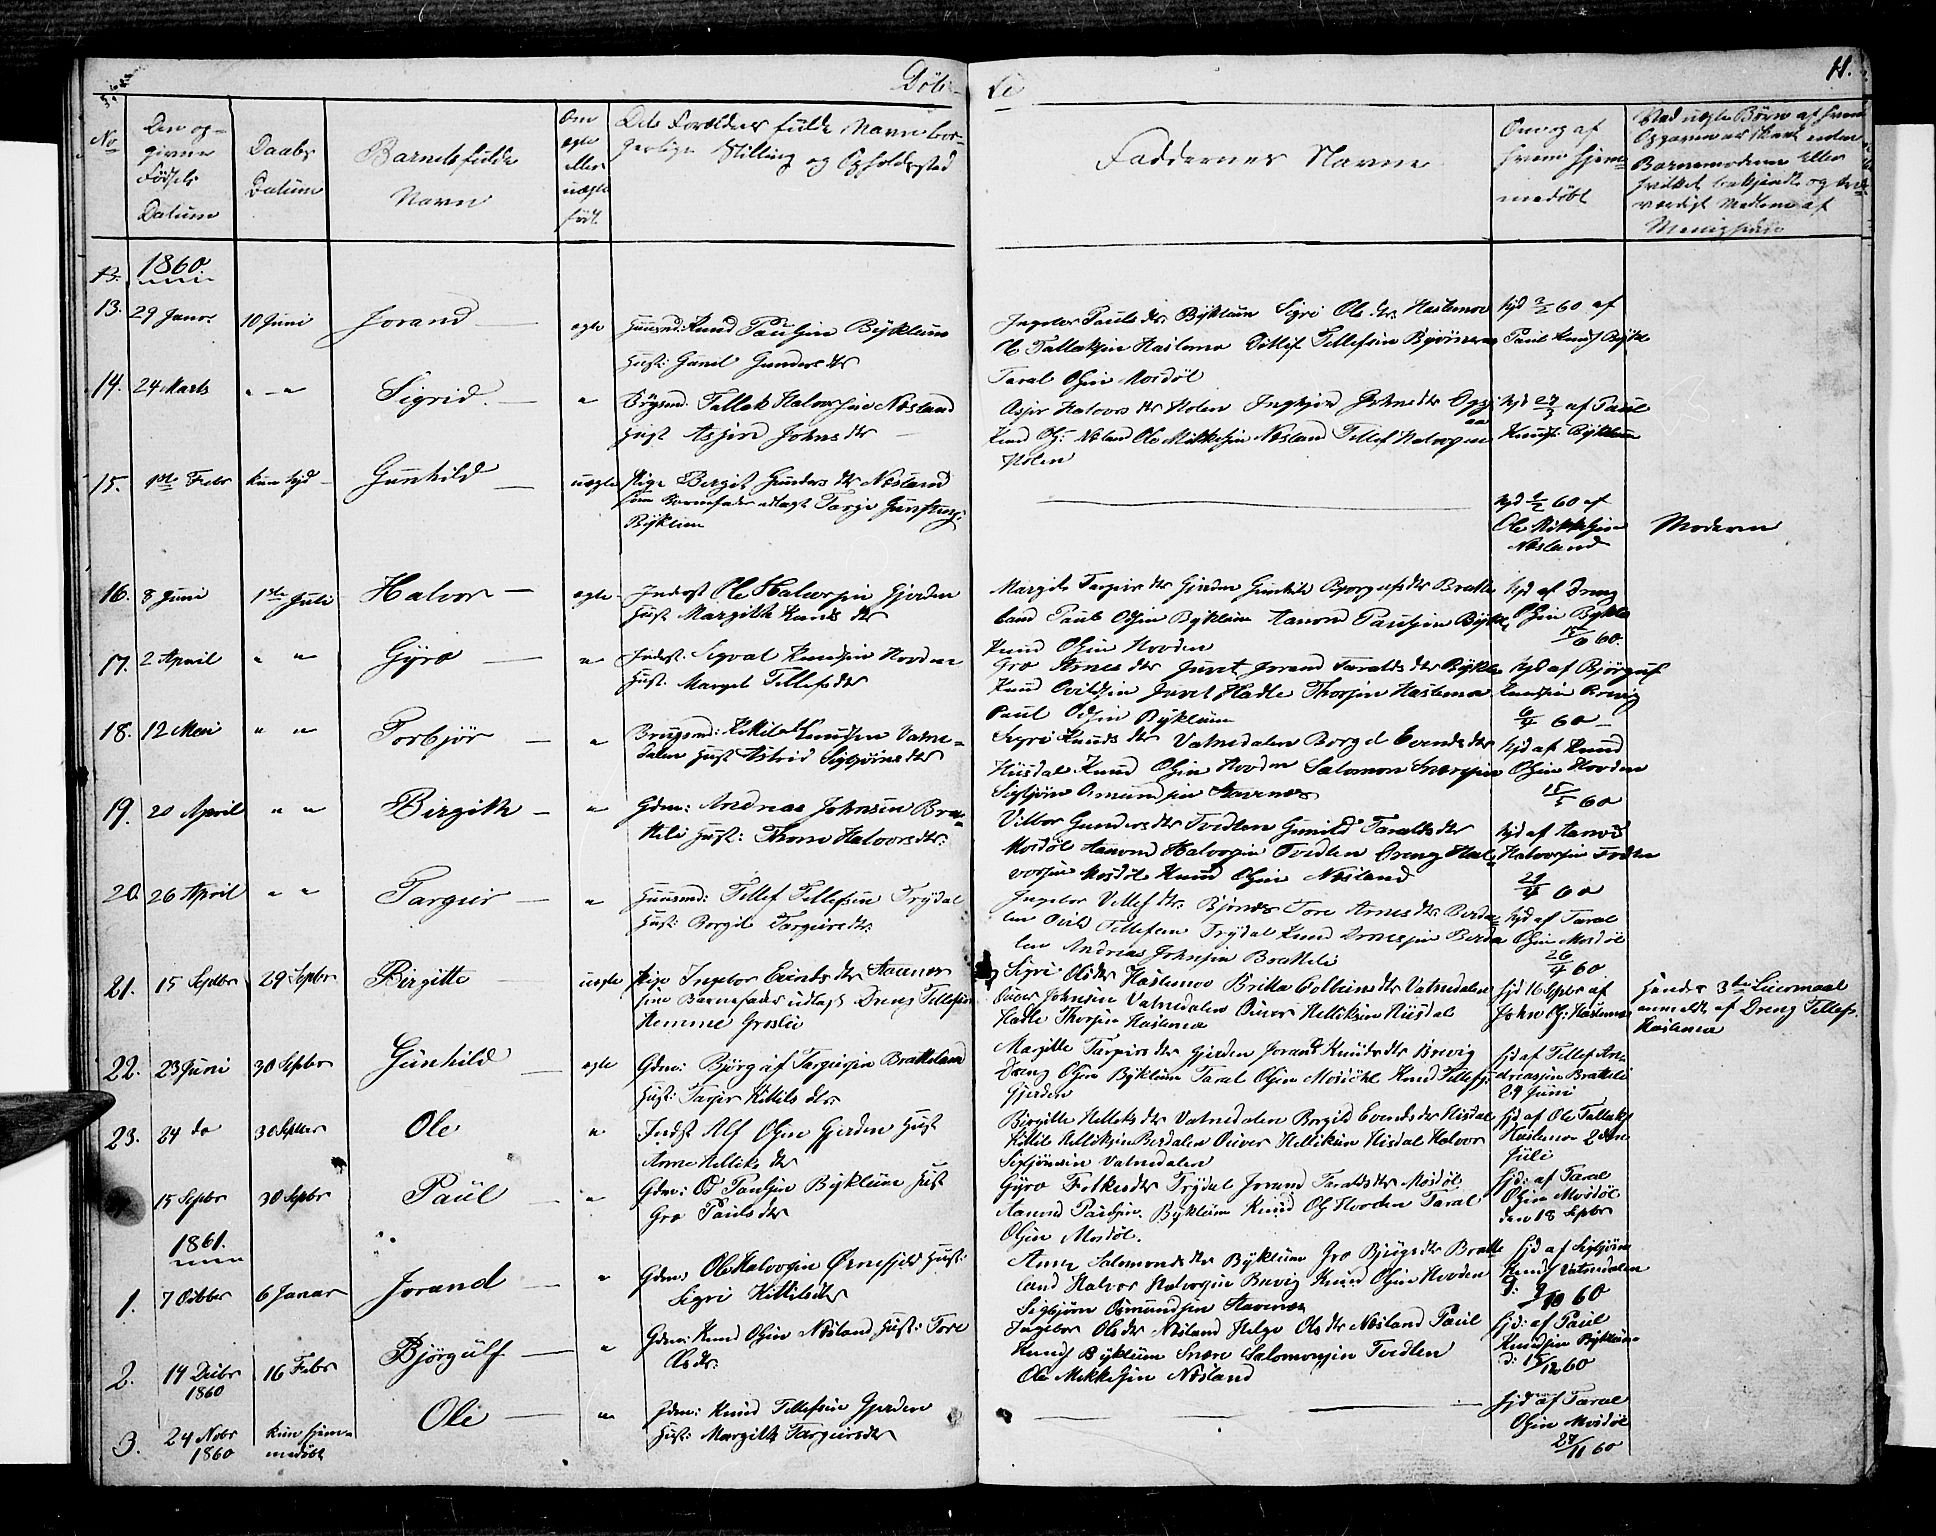 Döb- te 11.
No
Den op-
givne
Fødsels
Datum
Daabs
Datum
Barnets fulde
Navn
Om
ægte
eller
uægte
født
Det Forældres fulde Navne bor-
gerlige Stilling og Opholdssted
Faddernes Navne
Om og af
hvem hjem-
medøbt
Barnemoderen eller
Menighed
1860
13. 29 Januar 10 Juni Jorand ægte Huusmd: Knud Paulsen Byklum
Hust: Gunil Gunders dtr
Ingebor Pauls dtr Byklum Sigri Ols dtr Haslemoe
O Tallaksen Haslemo Ditlef Tellefsen Bjørnes
Taral Olsen Mosdøl
hjd 2/2 60 af
Paul Knuds Bykl
14. 24 Marts " - " Sigrid " Brugsmd: Tallak Halvorsen Næsland
Hust Asjer Johns dtr
Asjer Halvors dtr Holen Ingbjør Johns dtr
Knud Ols: Næsland Ole Mikkelsen Næsland Tellef Halvorsen
Holen
hjd 27/3 af Paul
Knuds: Byklum
15. 1ste Febr kun hjd Gunhild uægte Pige Birgit Gunders dtr Næsland
som Barnefader udlagt Targe Gunstens:
Byklum
hjd 2/2 60 af
Ole Mikkelsen
Næsland
Moderen
16. 8 Juni 1ste Juli Halvor ægte Inderst Ole Halvorsen Gjerden
Hust Margith Knuds dtr
Margit Targiers dtr Gjerden Gunhild Bjorgufs dtr Bratte
land Paul Odsen Byklum Aanond Paulsen Bykle
Knud Olsen Hovden
hjd af Dreng
Olsen Bykle
60
17. 2 April " " Gyro " Inderst: Sigval Knudsen Hovden
Hust. Margit Tellefs dtr
Gro Arnes dtr Juvet Jorand Taralds dtr Bykle
Knud Ovildsen Juvet Hadle Thorsen Haslemo
Paul Odsen Byklum
hjd af Bjørguf
Knudsen Breivig
6/4 60
18. 12 Mai " " Torbjør " Brugsmd: Kittil Knudsen Vatne-
dalen Hust Astrid Sigbjørns dtr
Sigri Knuds dtr Vatnedalen Borgil Evends dtr
Huisdal Knud Olsen Hovden Salomon Knudsen
Sigbjøn Osmundsen Stavenes
hjd af Knud
Olsen Hovden
15/5 60
19. 20 April " " Birgith " Gdm: Andreas Johnsen Brat-
teli Hust: Thone Halvors dtr:
Vilbor Gunders dtr Tvedten Gunild Taralds dtr
Mosdøl Aanond Halvorsen Tvedten Dreng Hal-
vorsen Mosdøl Knud Olsen Næsland
hjd af Aanond
Halvorsen Tvedten
21/4 60
20. 26 April " " Targier " Huusmd: Tellef Tellefsen Trydal
Hust: Borgil Targiers dtr.
Ingebor Tellefs dtr: Bjønes Tore Arnes dtr: Berda-
len Ovil Tellefsen Trydal Knud Arnesen Berda
len Andreas Johnsen Bratteli
hjd af Taral
Olsen Mosdøl
26/4 60
21. 15 Septbr 29 Septbr Birgitte uægte Pige Ingebor Evinds dtr Stavenes
som Barnefader udlagt Dreng Tellefsen
Hemme Groslii
Sigri Ols dtr Haslemoe Britta Colbeins dtr Vatnedalen
Oiver Johnsen Vatnedalen Oiver Helliksen Huisdal
Hadle Thorsen Haslemo
hjd 16 Septbr af
John Ols: Haslemo
Hendes 3die Leiermaal
anmeldt af Dreng Tellefs.
Haslemo
22. 23 Juni 30 Septbr Gunhild ægte Gdm: Bjørguf Targiersen Bratteland
Hust: Targer Kittils dtr
Margitte Targiers dtr Gjerden Jorand Knuds dtr Brevig
Dreng Olsen Byklum Taral Olsen Mosdøhl Knud Tellefs:
Gjerden
hjd af Tellef An-
dreassen Bratteli
24 Juni
23. 24 do 30 Septbr Ole " Inderst Alf Olsen Gjerden Hust
Anne Helleks dtr
Birgitte Helleks dtr Vatnedalen Borgild Evends dtr Hisdal
Kittil Helliksen Berdalen Oiver Helliksen Hisdal Halvor
Sigbjønsen Vatnedalen
hjd af Ole Tallaks
Haslemo 2den
Juli
15 Septbr 30 Septbr Paul " Gdm: Od Paulsen Byklum Hust
Gro Pauls dtr
Gyro Folkes dtr Trydal Jorand Taralds dtr Mosdøl
Aanond Paulsen Byklum Knud Ols Hovden Taral
Olsen Mosdøl.
hjd: af Taral
Olsen Mosdøl
den 18 Septbr
1861.
1. 7 Octbr 6 Januar Jorand " Gdm: Ole Halvorsen Ørnefjeld Hust:
Sigri Kittils dtr
Anne Salomons dtr Byklum Gro Bjugs dtr Bratte
land Halvor Halvorsen Brevig Knud Olsen Hovden
Sigbjøn Osmundsen Stavenes
hjd af Sigbjøn
Knuds Vatnedalen
d: 9/10 60
2. 14 Decbr
1860
16 Febr Bjørgulf " Gdm: Knud Olsen Næsland Hust: Tore
Ols dtr.
Ingebor Ols dtr Næsland Helge Ols dtr Næsland Paul
Knuds Byklum Snære Salomonsen Tvedten
Ole Mikkelsen Næsland
hjd: af Paul
Knudsen Byklum
d: 15/12 60
3. 24 Novbr
1860
kun hjem-
medøbt
Ole " Gdm: Knud Tellefsen Gjerden
Hust: Margith Targiers dtr
hjd af Taral
Olsen Mosdøl
27/11 60